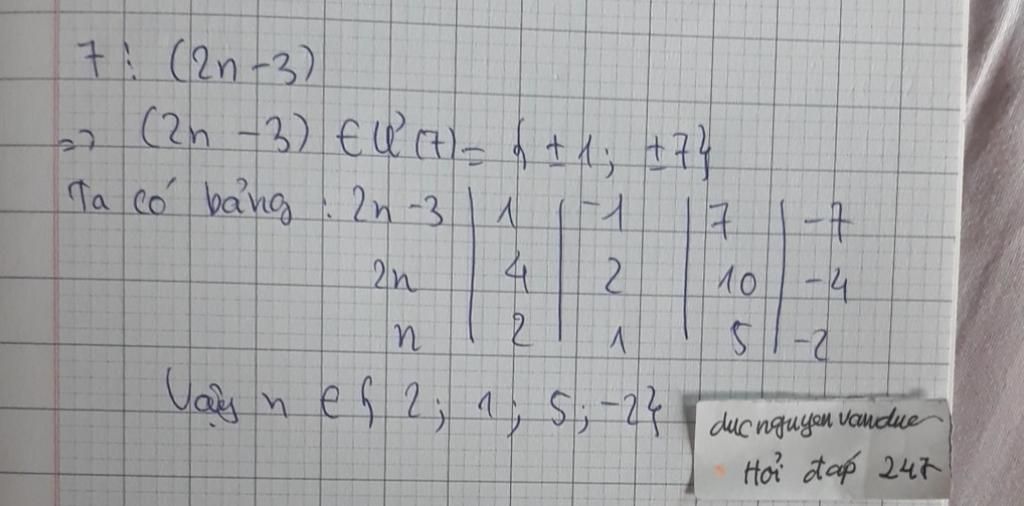 7 ⋮ (2n - 3)
=> (2n - 3) ∈ Ư(7) = { ±1; ±7}
Ta có bảng : 2n - 3 | 1 | -1 | 7 | -7
2n | 4 | 2 | 10 | -4
n | 2 | 1 | 5 | -2
Vậy n ∈ { 2; 1; 5; -2}
ducnguyenvanduc
Hỏi đáp 247